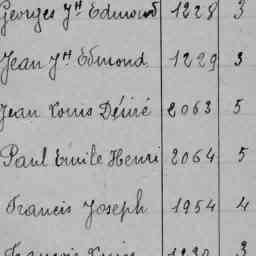 Georges Jh Edmond 1228 3
Jean Jh Edmond 1229 3
Jean Louis Désiré 2063 5
Paul Emile Henri 2064 5
Francis Joseph 1954 4
François 1230 3